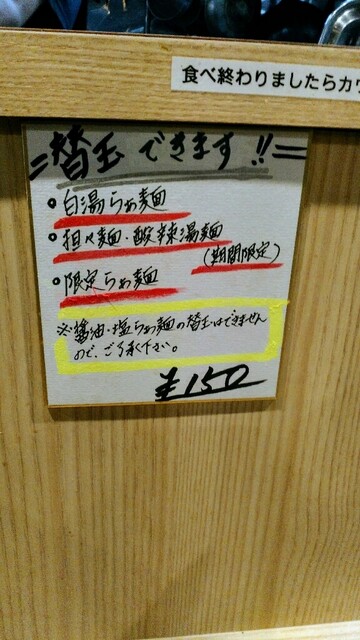 食べ終わりましたらカウ
=替玉できます!!=
・白湯らぁ麺
・担々麺・酸辣湯麺
(期間限定)
・限定らぁ麺
※醤油・塩らぁ麺の替玉はできません
ので、ご了承下さい。
¥150